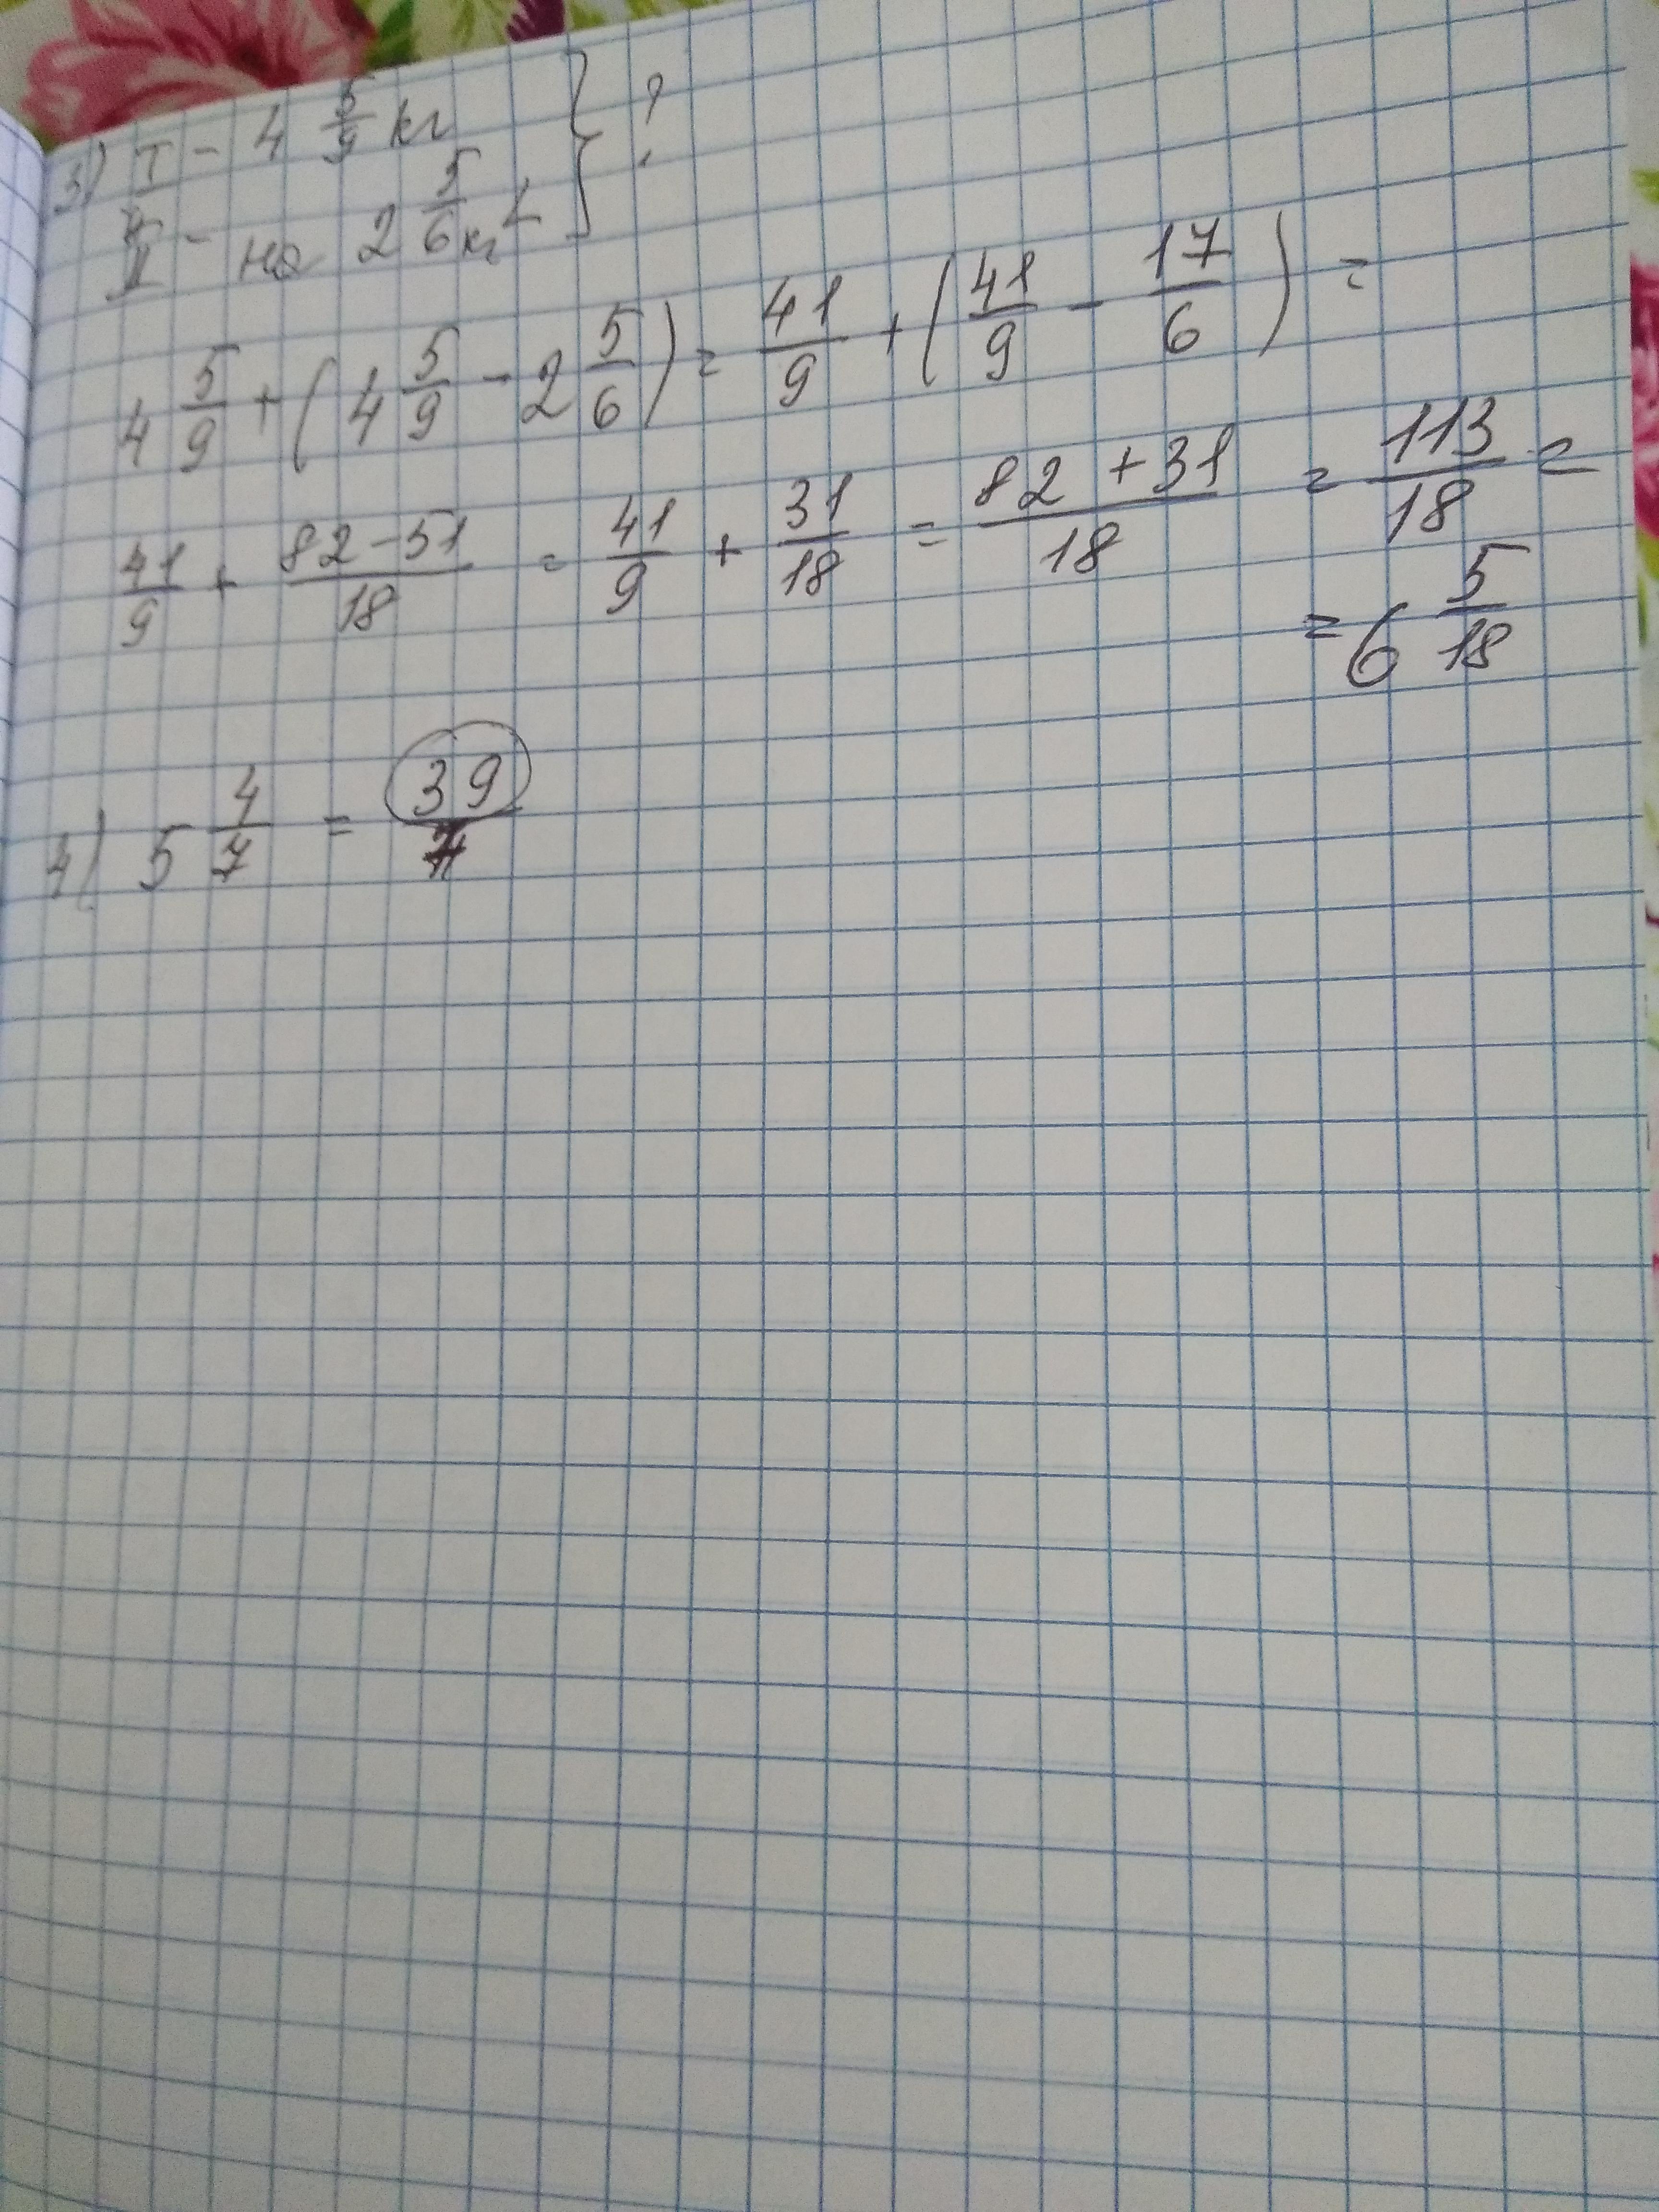 3) I - 4 5/9 кг } ?
II - на 2 5/6 кг <
4 5/9 + (4 5/9 - 2 5/6) = 41/9 + (41/9 - 17/6) =
41/9 + (82-51)/18 = 41/9 + 31/18 = (82+31)/18 = 113/18 =
= 6 5/18
4) 5 4/7 = 39/7